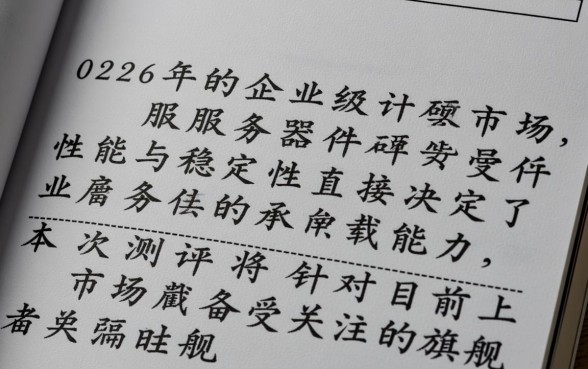 0226年的企业级计硬市场,
服服务器件硬受件
性能与稳定性直接决定了
业务的承载能力,
本次测评将针对目前上
市场备受关注的旗舰
者英舰